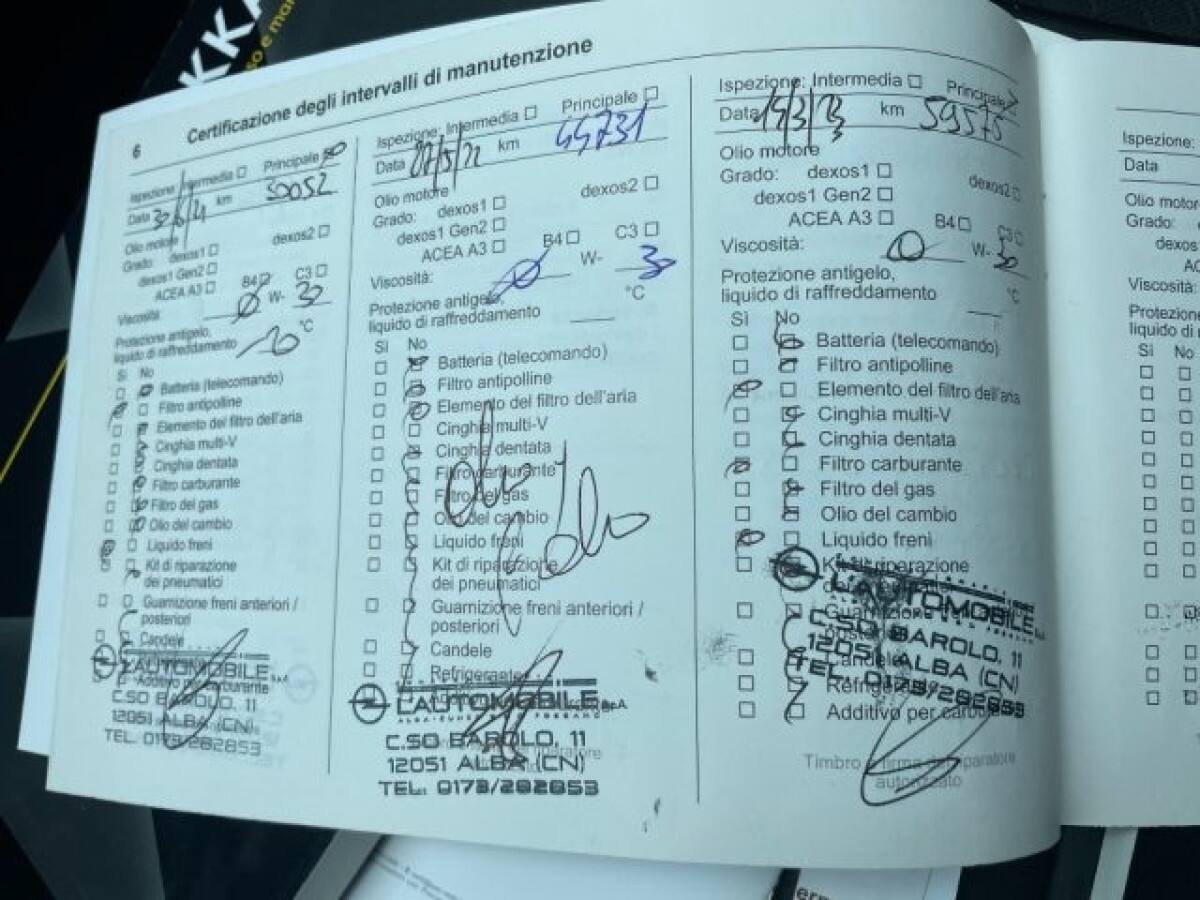 KKA
so e man
6 Certificazione degli intervalli di manutenzione
Ispezione: Intermedia Principale
Data km 50052
Olio motore
Grado: dexos1 dexos2
dexos1 Gen2
ACEA A3 B4 C3
Viscosità: 0 W- 30
Protezione antigelo,
liquido di raffreddamento °C
Sì No
Batteria (telecomando)
Filtro antipolline
Elemento del filtro dell'aria
Cinghia multi-V
Cinghia dentata
Filtro carburante
Filtro del gas
Olio del cambio
Liquido freni
Kit di riparazione
dei pneumatici
Guarnizione freni anteriori /
posteriori
Candele
L'AUTOMOBILE S.p.A.
Additivo per carburante
C.SO BAROLO, 11
12051 ALBA (CN)
TEL. 0173/282853
Ispezione: Intermedia Principale
Data km 44731
Olio motore
Grado: dexos1 dexos2
dexos1 Gen2
ACEA A3 B4 C3
Viscosità: 0 W- 30
Protezione antigelo,
liquido di raffreddamento °C
Sì No
Batteria (telecomando)
Filtro antipolline
Elemento del filtro dell'aria
Cinghia multi-V
Cinghia dentata
Filtro carburante
Filtro del gas
Olio del cambio
Liquido freni
Kit di riparazione
dei pneumatici
Guarnizione freni anteriori /
posteriori
Candele
Refrigerante
L'AUTOMOBILE S.p.A.
C.SO BAROLO, 11
12051 ALBA (CN)
TEL. 0173/282853
Ispezione: Intermedia Principale
Data 15/3/23 km 59575
Olio motore
Grado: dexos1 dexos2
dexos1 Gen2
ACEA A3 B4 C3
Viscosità: 0 W- 30
Protezione antigelo,
liquido di raffreddamento °C
Sì No
Batteria (telecomando)
Filtro antipolline
Elemento del filtro dell'aria
Cinghia multi-V
Cinghia dentata
Filtro carburante
Filtro del gas
Olio del cambio
Liquido freni
Kit di riparazione
L'AUTOMOBILE S.p.A.
Guarnizione
C.SO BAROLO, 11
12051 ALBA (CN)
Candele
TEL. 0173/282853
Refrigerante
Additivo per carbu
Timbro e firma del riparatore
autorizzato
Ispezione:
Data
Olio motor
Grado:
dexos
Viscosità:
Protezione
liquido di
Sì No